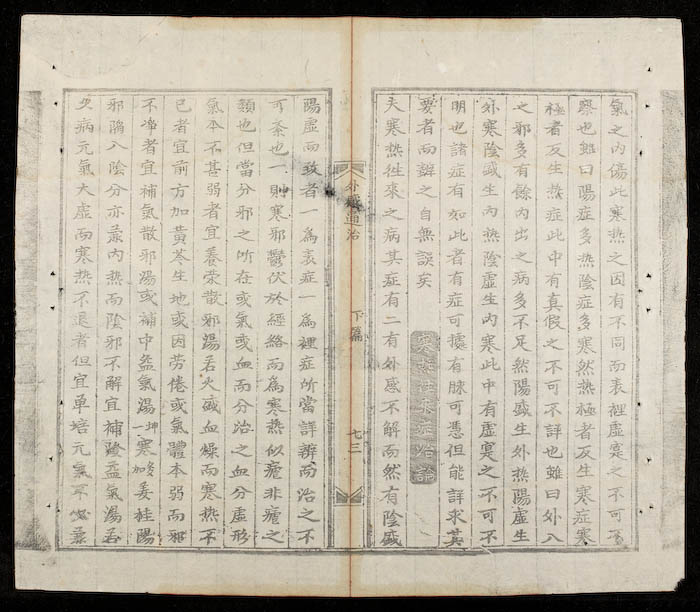 氣之內傷此寒热之因有不同而表裡虛寔之不可不
察也雖曰陽症多热陰症多寒然热極者反生寒症寒
極者反生热症此中有真假之不可不評也雖曰外入
之邪多有餘內出之病多不足然陽盛生外热陽虛生
外寒陰盛生內热陰虛生內寒此中有虛寔之不可不
明也諸症有如此者有症可據有脉可憑但能詳求其
要者而辭之自無誤矣
寒热往來症治論
夫寒热往來之病其症有二有外感不解而然有陰盛
外感通治
下篇
七三
陽虛而致者一為表症一為裡症所當詳辨而治之不
可紊也一則寒邪鬱伏於經絡而為寒热似瘧非瘧之
類也但當分邪之所在或氣或血而分治之血分虛形
氣本不甚弱者宜養榮散邪湯若火盛血燥而寒热不
已者宜前方加黄芩生地或因劳倦或氣體本弱而邪
不凈者宜補氣散邪湯或補中益氣湯坤寒加多姜桂陽
邪陥入陰分亦最內热而陰邪不解宜補陰益氣湯若
久病元氣大虛而寒热不退者但宜单培元氣不必兼